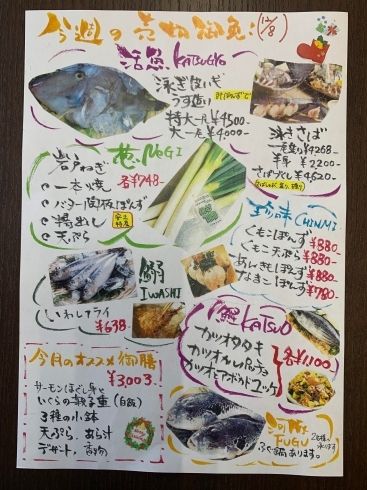 今週の売切御免!(12/8)
活魚 KATSUGYO
泳ぎ皮いぎ
うす造り
特大一尾 ¥4500
大一尾 ¥4000-
泳ぎさば
一尾造り ¥4268-
半身 ¥2200-
さばづくし ¥4520-
葱 NEGI
岩戸ねぎ
一本焼
バター関板ぽんず
揚出し
天ぷら
各¥748-
珍味 CHINMI
くもこぽんず ¥880-
くもこ天ぷら ¥880-
あんきもぽんず ¥880-
なまこぽんず ¥780-
鰯 IWASHI
いわしフライ
¥638-
鰹 KATSUO
カツオタタキ
カツオカルパッチョ
カツオとアボカドユッケ
各¥1100
今月のオススメ御膳
¥3,003-
サーモンほぐし身と
いくらの親子重(白飯)
3種の小鉢
天ぷら、あら汁
デザート、香物
河豚 FUGU
ふぐ鍋あります。